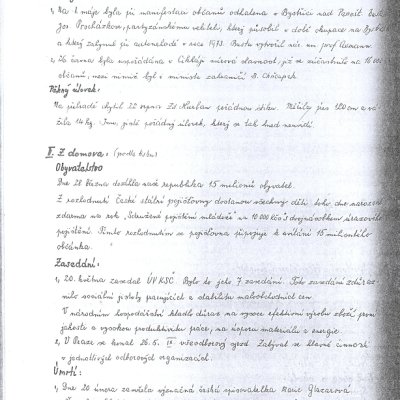 1, Na 1. máje byla při manifestaci občanů odhalena v Bystřici nad Pernšt. busta
Jos. Procházkovi, partyzánskému veliteli, který působil v době okupace na Bystřicku
a který zahynul při autonehodě v roce 1973. Bustu vytvořil nár. um. Josef
2, 26. června byla uspořádána v Cikháji mírová slavnost, jíž se zúčastnilo na 16 000
občanů, mezi nimiž byl i ministr zahraničí B. Chňoupek.
Pěkný úlovek:
Na přehradě chytil 22. srpna Zd. Kuclar pořádnou štiku. Měřila jen 120 cm a vá-
žila 14 kg. Inu, jistě pořádný úlovek, který se tak hned nevidí.
II. Z domova: (podle tisku)
Obyvatelstvo
Dne 28. března dosáhla naše republika 15 milionů obyvatel.
Z rozhodnutí České státní pojišťovny dostanou všechny děti toho dne narozené
zdarma na rok „Sdružené pojištění mládeže" na 10 000 Kčs s dvojnásobkem úrazového
pojištění. Tímto rozhodnutím se pojišťovna připojuje k uvítání 15 miliontého
občánka.
Zasedání:
1, 20. května zasedal ÚV KSČ. Bylo to jeho 7. zasedání. Toto zasedání zdůraz-
nilo sociální jistoty pracujících a stabilitu maloobchodních cen.
V národním hospodářství kladlo důraz na vysoce efektivní výrobu zboží první
jakosti a vysokou produktivitu práce, na úsporu materiálu a energie.
2, V Praze se konal 26. 5. IX. všeodborový sjezd. Zabýval se hlavně činností
v jednotlivých odborových organizacích.
Úmrtí:
1, Dne 20. února zemřela význačná česká spisovatelka Marie Glazarová.